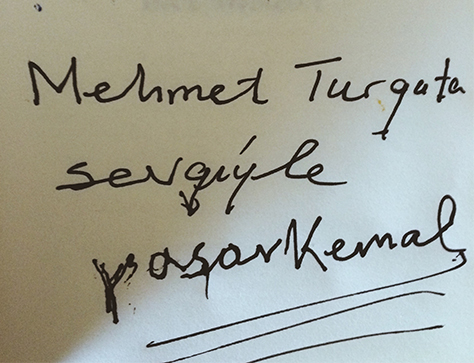 Mehmet Turguta
sevgiyle
yaşar Kemal